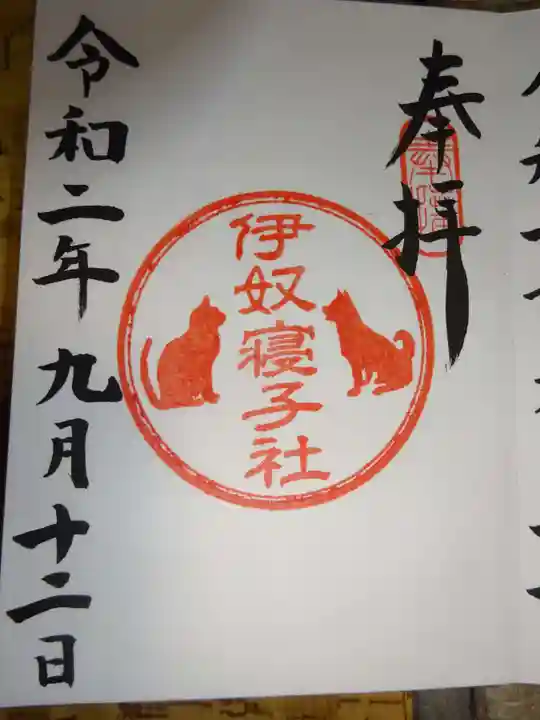 奉拝
伊奴寝子社
令和二年九月十二日